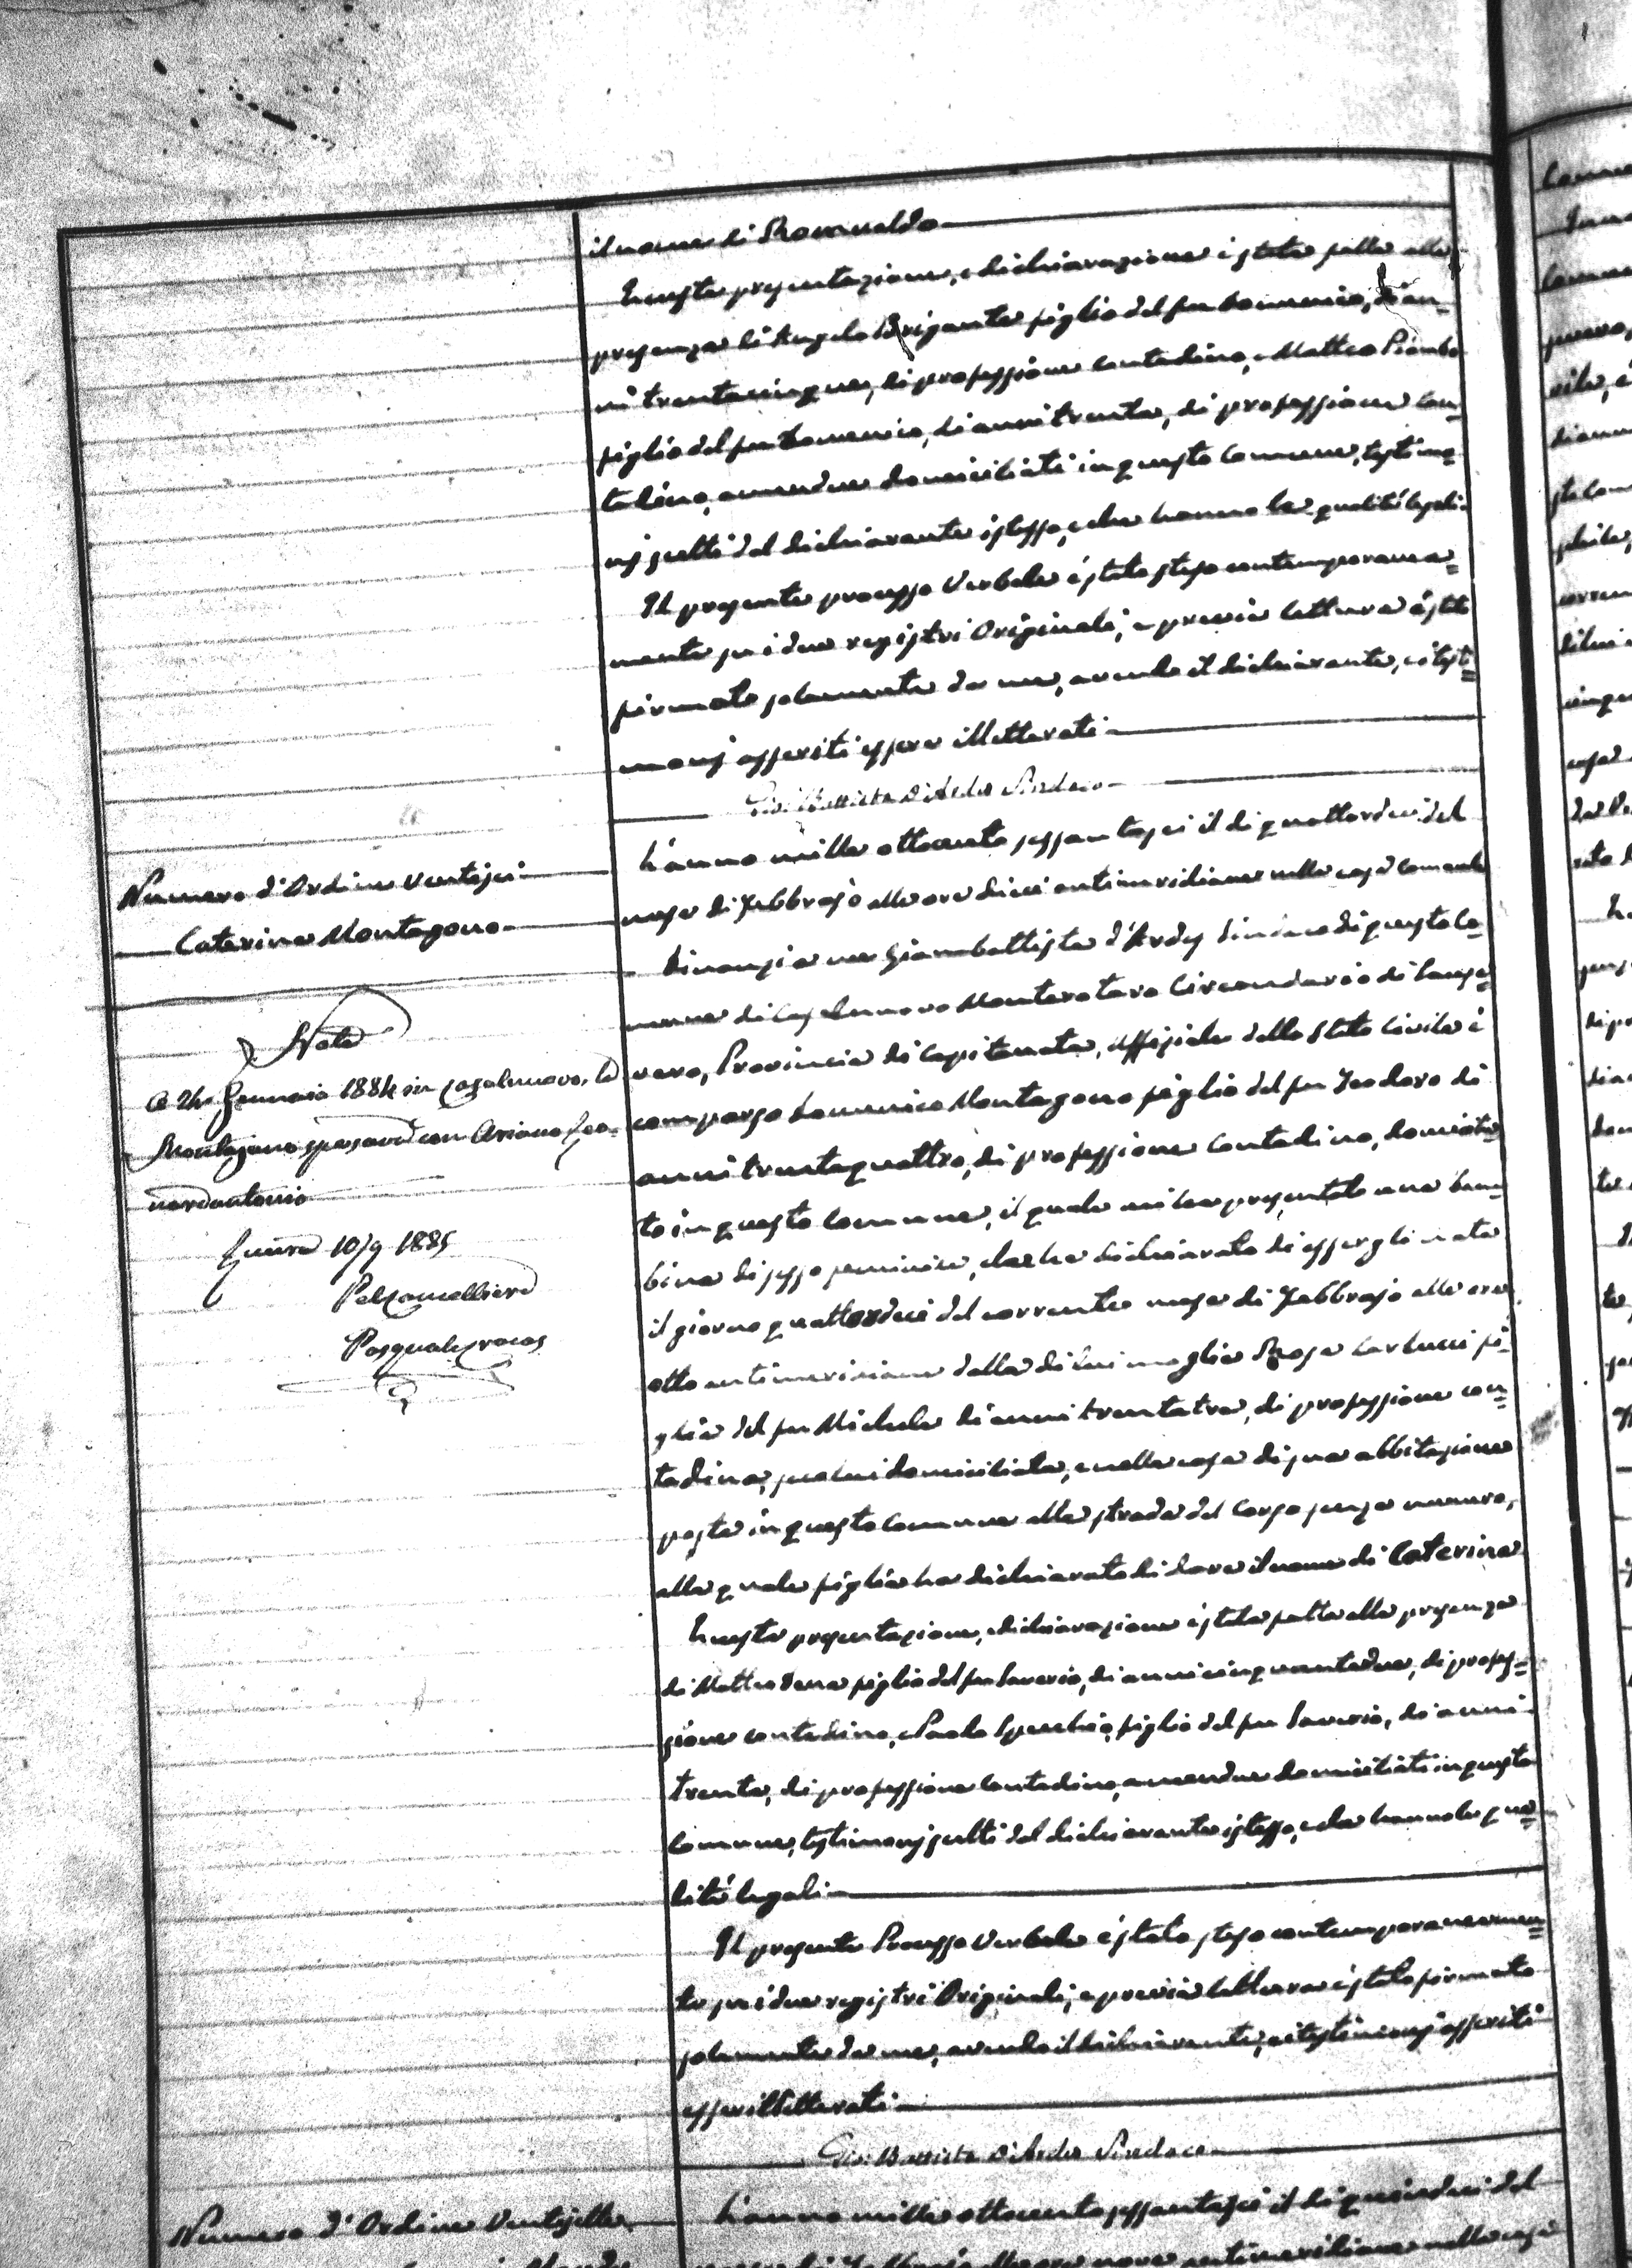 il nome di Romualdo
Questa presentazione, e dichiarazione è stata fatta alla
presenza di Angelo Brigante figlio del fu Domenico, di an=
ni trentacinque, di professione contadino, e Matteo Piombo
figlio del fu Domenico, di anni trenta, di professione con=
tadino, amendue domiciliati in questo Comune, testimo=
nj scelti dal dichiarante istesso, e che hanno le qualità legali
Il presente processo Verbale è stato steso contemporanea=
mente su i due registri Originali, e previa lettura è stato
firmato solamente da me, avendo il dichiarante, e i testi=
monj asseriti essere illetterati
Gio: Battista d'Ardes Sindaco
Numero d'Ordine Ventisei
Caterina Montagano
L'anno mille ottocento sessantasei il di quattordici del
mese di Febbrajo alle ore dieci antimeridiane nella casa Comunale
Dinanzi a me Giambattista d'Ardes Sindaco di questo Co=
mune di Casalnuovo Monterotaro Circondario di Sanse=
vero, Provincia di Capitanata, Uffiziale dello Stato Civile è
comparso Domenico Montagano figlio del fu Teodoro di
anni trentaquattro, di professione contadino, domicilia=
to in questo Comune, il quale mi ha presentato una bam=
bina di sesso feminino, che ha dichiarato di essergli nata
il giorno quattordici del corrente mese di Febbrajo alle ore
otto antimeridiane dalla di lui moglie Rosa Carlucci fi=
glia del fu Michele di anni trentatre, di professione con=
tadina, seco lui domiciliata, e nella casa di sua abbitazione
posta in questo Comune alla strada del Corso senza numero,
alla quale figlia ha dichiarato di dare il nome di Caterina
Nota
A 24 Gennaio 1884 in Casalnuovo, la
Montagano sposavasi con Ariano Leo=
nardantonio
Lucera 10/9 1885
Pel Cancelliere
Pasquale
Questa presentazione, e dichiarazione è stata fatta alla presenza
di Matteo figlio del fu Saverio, di anni cinquantadue, di profes=
sione contadino, e Paolo Specchio, figlio del fu Saverio, di anni
trenta, di professione contadino, amendue domiciliati in questo
Comune, testimonj scelti dal dichiarante istesso, e che hanno le qua=
lità legali
Il presente Processo Verbale è stato steso contemporaneamen=
te su i due registri Originali, e previa lettura è stato firmato
solamente da me, avendo il dichiarante, e i testimonj asseriti
essere illetterati
Gio: Battista d'Ardes Sindaco
Numero d'Ordine Ventisette
L'anno mille ottocento sessantasei il di quindici del